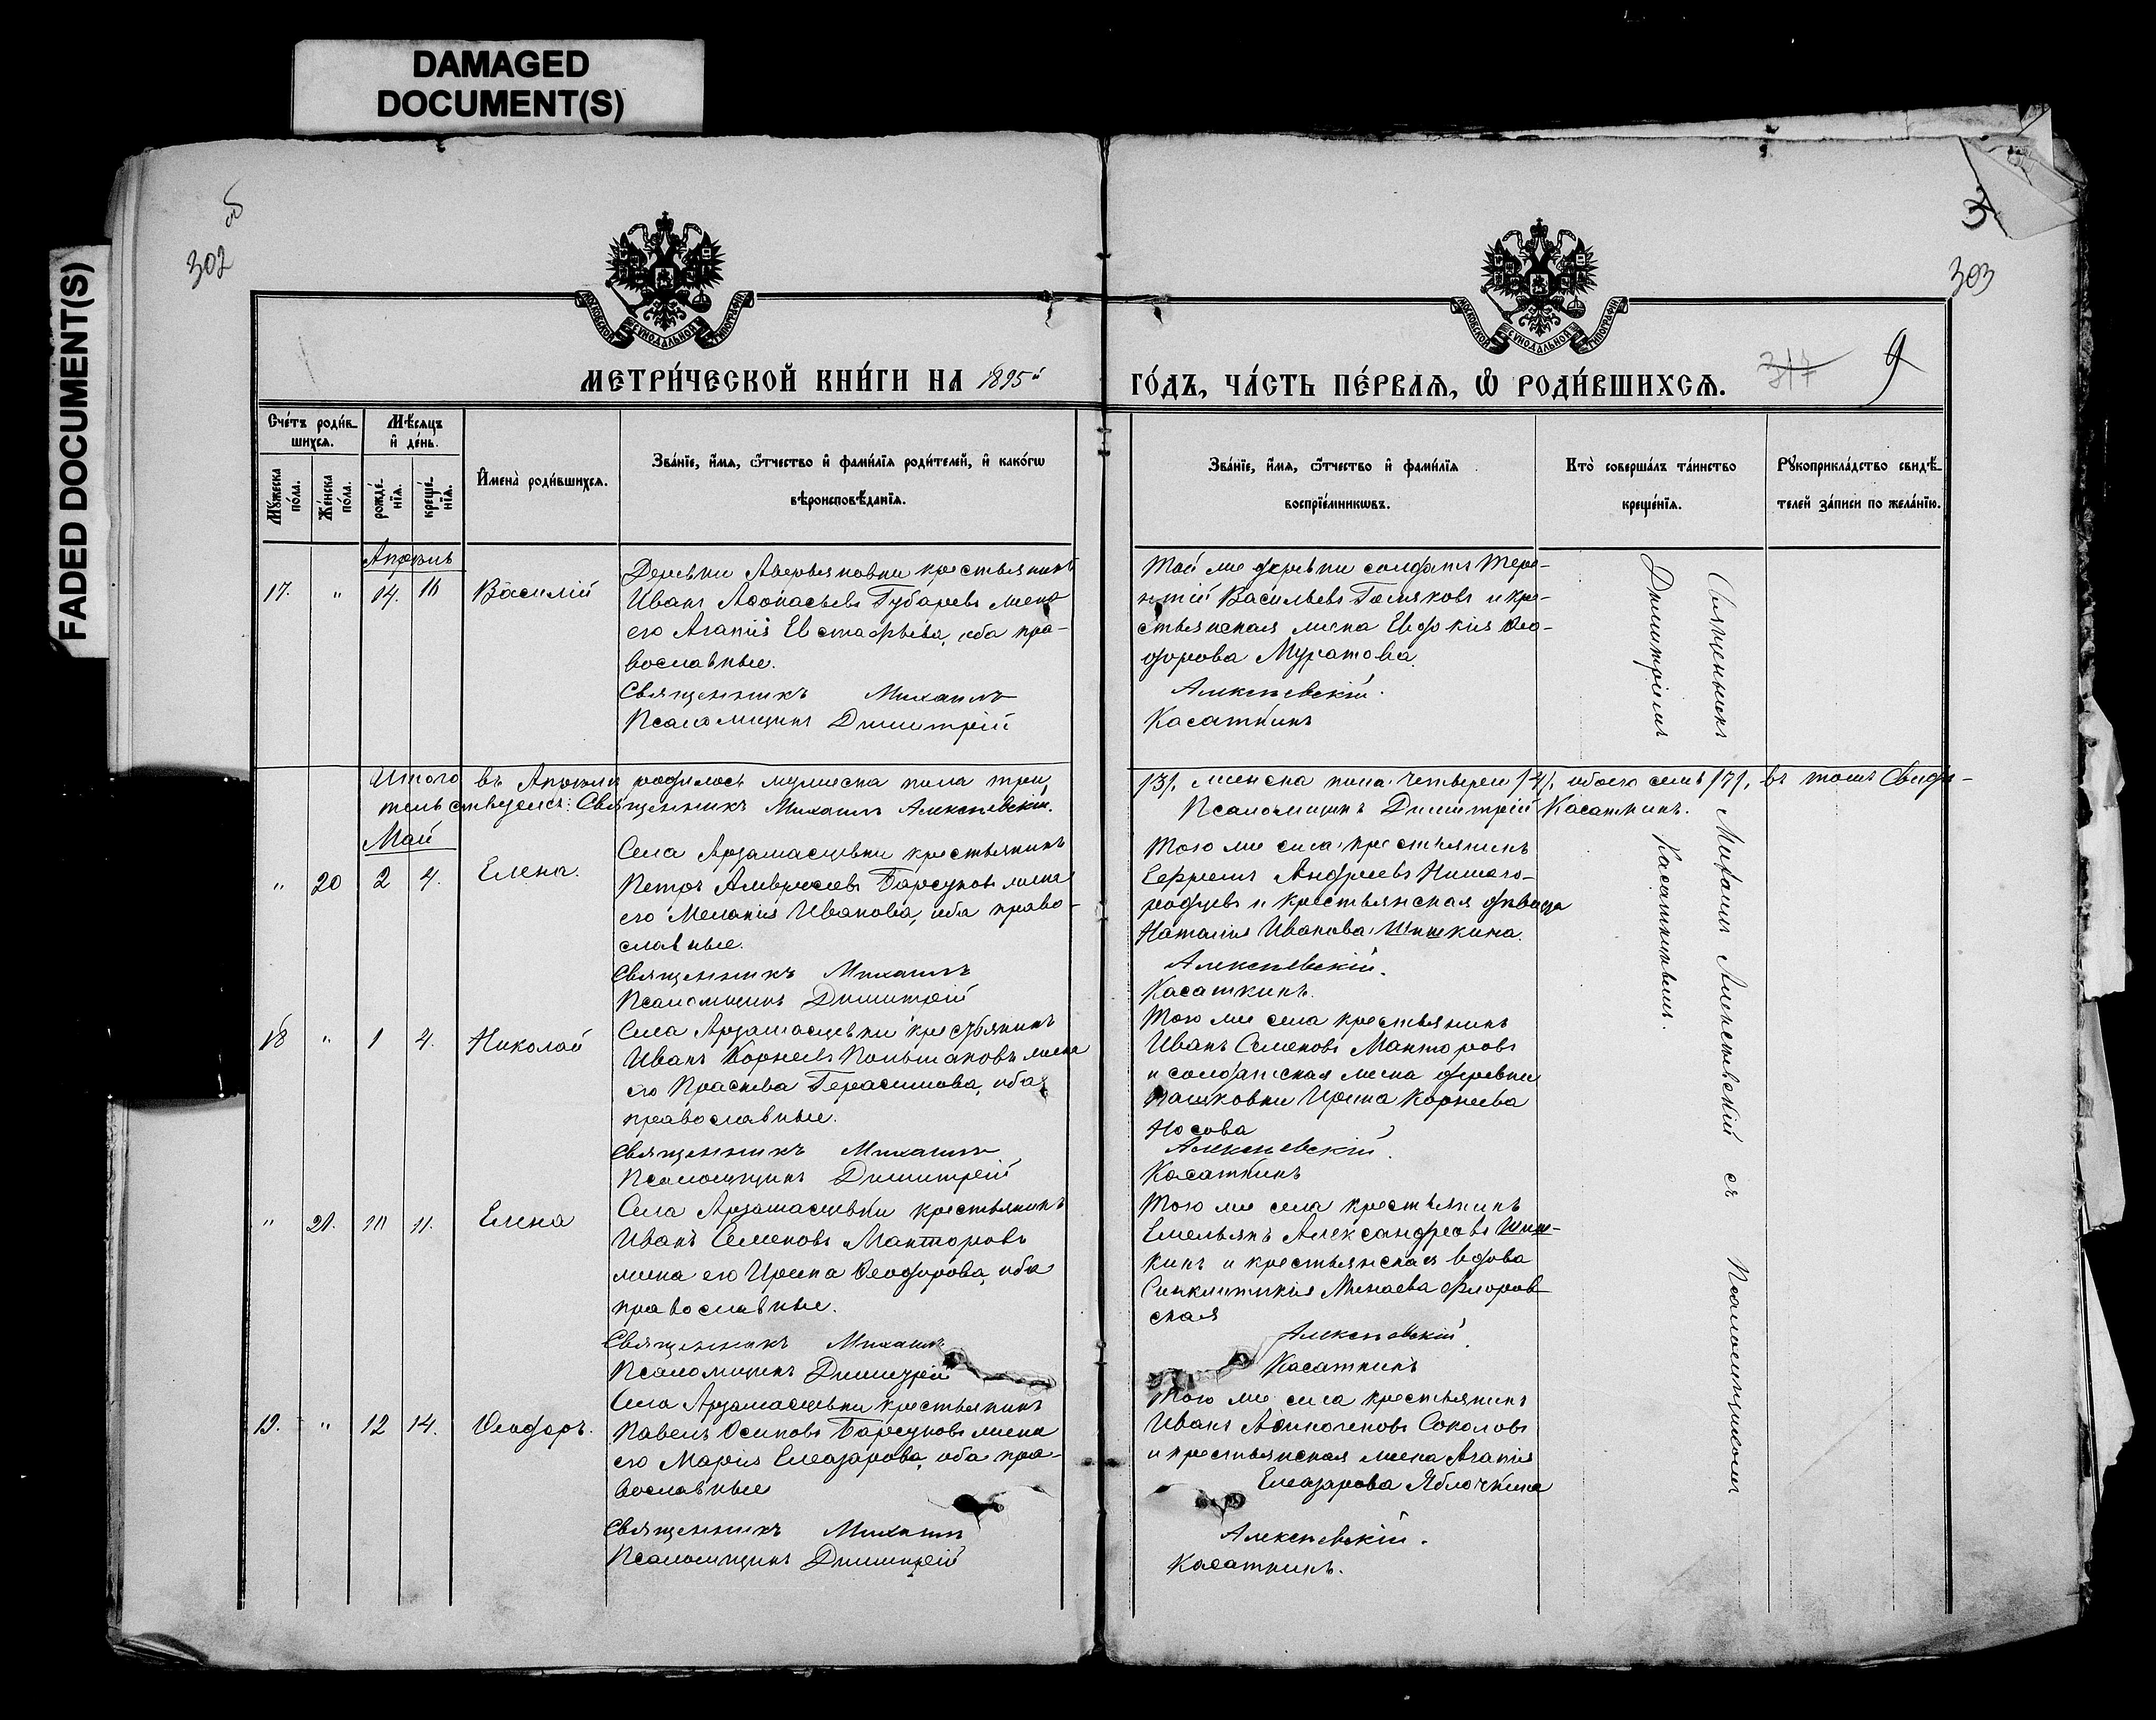 DAMAGED
DOCUMENT(S)
FADED DOCUMENT(S)
302
303
3
317
9
МЕТРИ́ЧЕСКОЙ КНИ́ГИ НА 1895й
ГО́ДЪ, ЧА́СТЬ ПЕ́РВАѦ, Ѽ РОДИ́ВШИХСѦ.
Сче́тъ роди́в-
шихсѧ.
Мѣ́сѧцъ
и҆ де́нь.
Мꙋ́жеска
по́ла.
Же́нска
по́ла.
рожде́-
нїѧ.
креще́-
нїѧ.
И҆мена̀ роди́вшихсѧ.
Зва́нїе, и҆́мѧ, ѻ҆́тчество и҆ фами́лїѧ роди́телей, и҆ како́гѡ
вѣроисповѣ́данїѧ.
Зва́нїе, и҆́мѧ, ѻ҆́тчество и҆ фами́лїѧ
воспрїе́мникѡвъ.
Кто̀ соверша́лъ та́инство
креще́нїѧ.
Рꙋкоприкла́дство свидѣ́-
телей за́писи по жела́нїю.
Апрѣль
17. " 14. 16 Василій
Деревни Аверьяновки крестьянинъ
Иванъ Аѳонасьевъ Губаревъ жена
его Агапія Евстафьева, оба пра-
вославные.
Священникъ Михаилъ
Псаломщикъ Димитрій
Той же деревни солдатъ Тере-
нтій Васильевъ Поляковъ и кре-
стьянская жена Евдокія Ѳео-
дорова Муратова.
Алексѣевскій.
Касаткинъ
Итого въ Апрѣлѣ родилось мужеска пола три
/3/, женска пола четыре /4/, обоего семь /7/, въ томъ Свидѣ-
тельствуемъ: Священникъ Михаилъ Алексѣевскій.
Псаломщикъ Димитрій Касаткинъ.
Май
" 20 2 4. Елена.
Села Арзамасцевки крестьянинъ
Петръ Амвросіевъ Барсуковъ жена
его Меланія Иванова, оба право-
славные.
Священникъ Михаилъ
Псаломщикъ Димитрій
Того же села крестьянинъ
Ефремъ Андреевъ Нижего-
родцевъ и крестьянская дѣвица
Наталія Иванова Шишкина.
Алексѣевскій.
Касаткинъ.
18 " 1 4. Николай
Села Арзамасцевки крестьянинъ
Иванъ Корнеевъ жена
его Прасковья Герасимова, оба
православные.
Священникъ Михаилъ
Псаломщикъ Димитрій
Того же села крестьянинъ
Иванъ Семеновъ Манторовъ
и солдатская жена деревни
Пашковки Ирина Корнеева
Носова
Алексѣевскій.
Касаткинъ
" 21. 10 11. Елена
Села Арзамасцевки крестьянинъ
Иванъ Семеновъ Манторовъ
жена его Ирина Ѳеодорова, оба
православные.
Священникъ Михаилъ
Псаломщикъ Димитрій
Того же села крестьянинъ
Емельянъ Александровъ Шиш-
кинъ и крестьянская вдова
Синклитикія Минаева Флоров-
ская
Алексѣевскій.
Касаткинъ
19. " 12 14. Ѳеодоръ.
Села Арзамасцевки крестьянинъ
Павелъ Осиповъ Барсуковъ жена
его Марія Елеазарова, оба пра-
вославные
Священникъ Михаилъ
Псаломщикъ Димитрій
Того же села крестьянинъ
Иванъ Соколовъ
и крестьянская жена Агапія
Елеазарова Яблочкина
Алексѣевскій.
Касаткинъ.
Священникъ Михаилъ Алексѣевскій съ Псаломщикомъ
Димитріемъ Касаткинымъ.